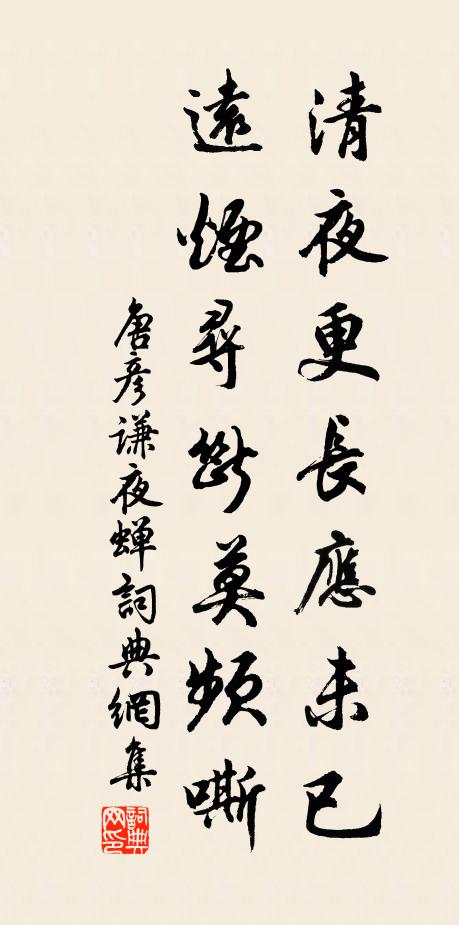 清夜更長應未已
遠煙尋斷莫頻嘶
唐彥謙夜蟬詞典網集
詞典網印